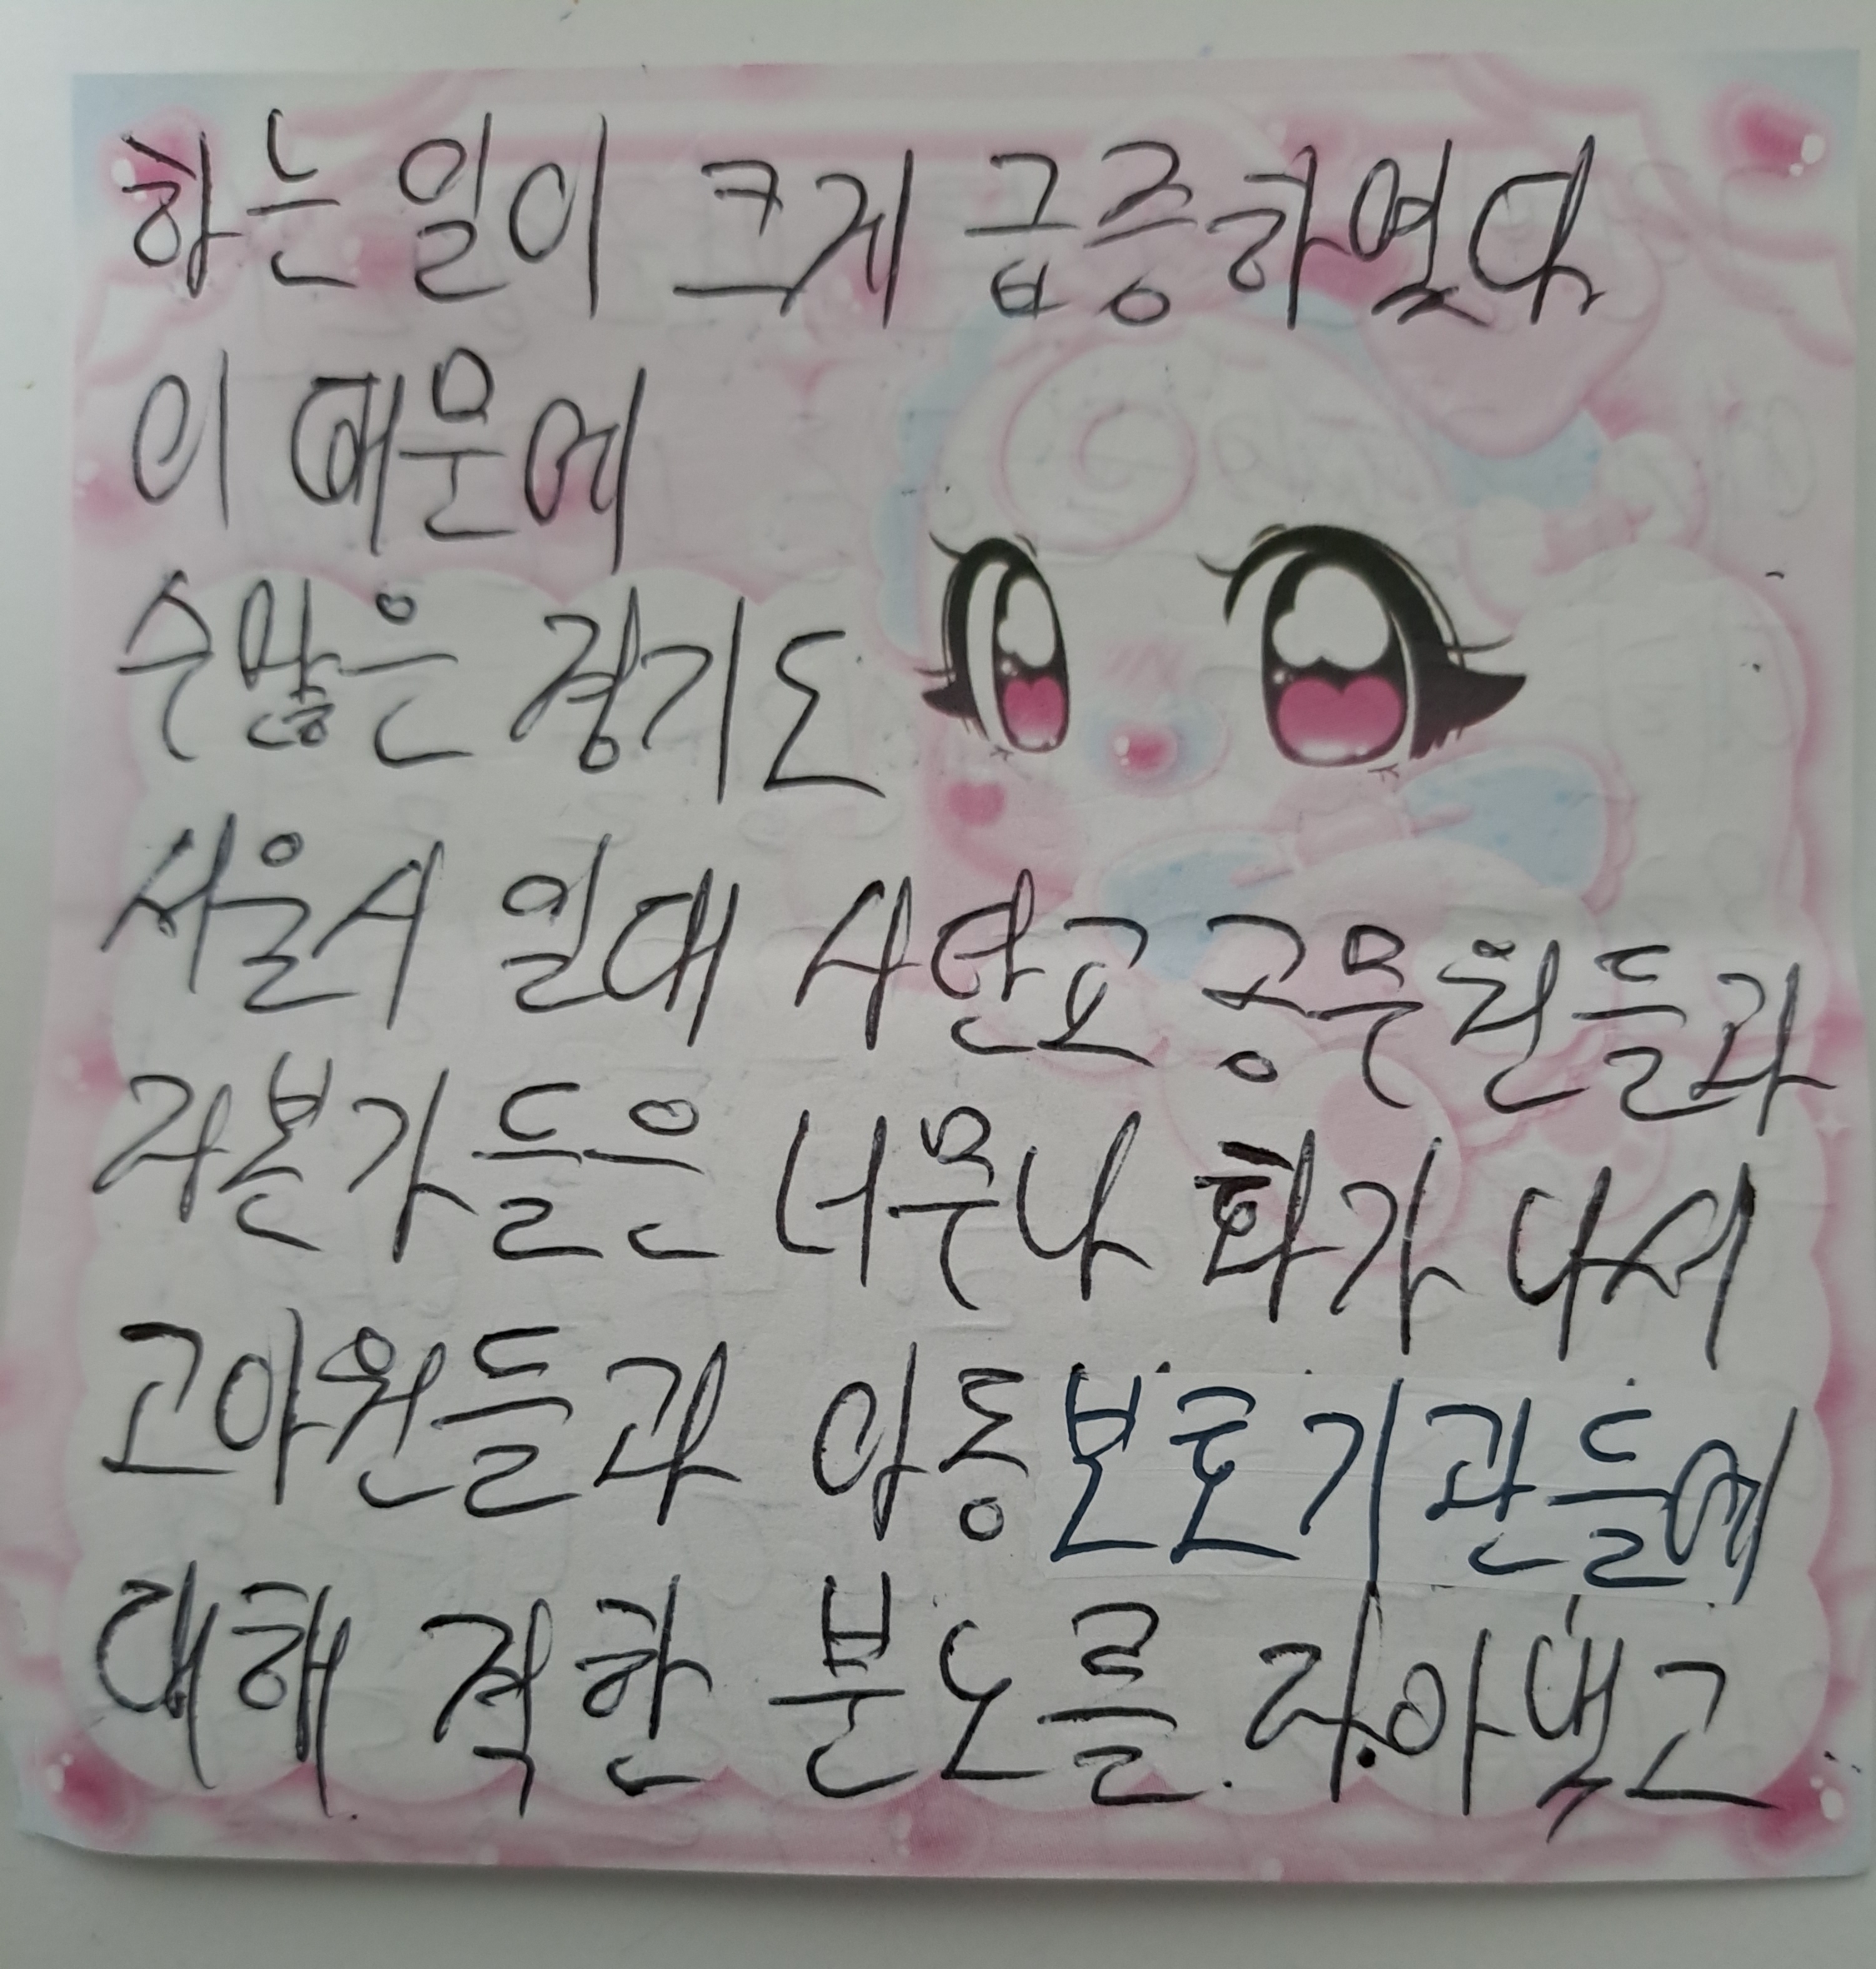 하는 일이 크게 급증하였다
이 때문에
수많은 경기도
서울시 일대 사면고 공무원들과
자본가들은 너무나 화가 나서
고아원들과 아동보호기관들에
대해 격한 분노를 자아냈고